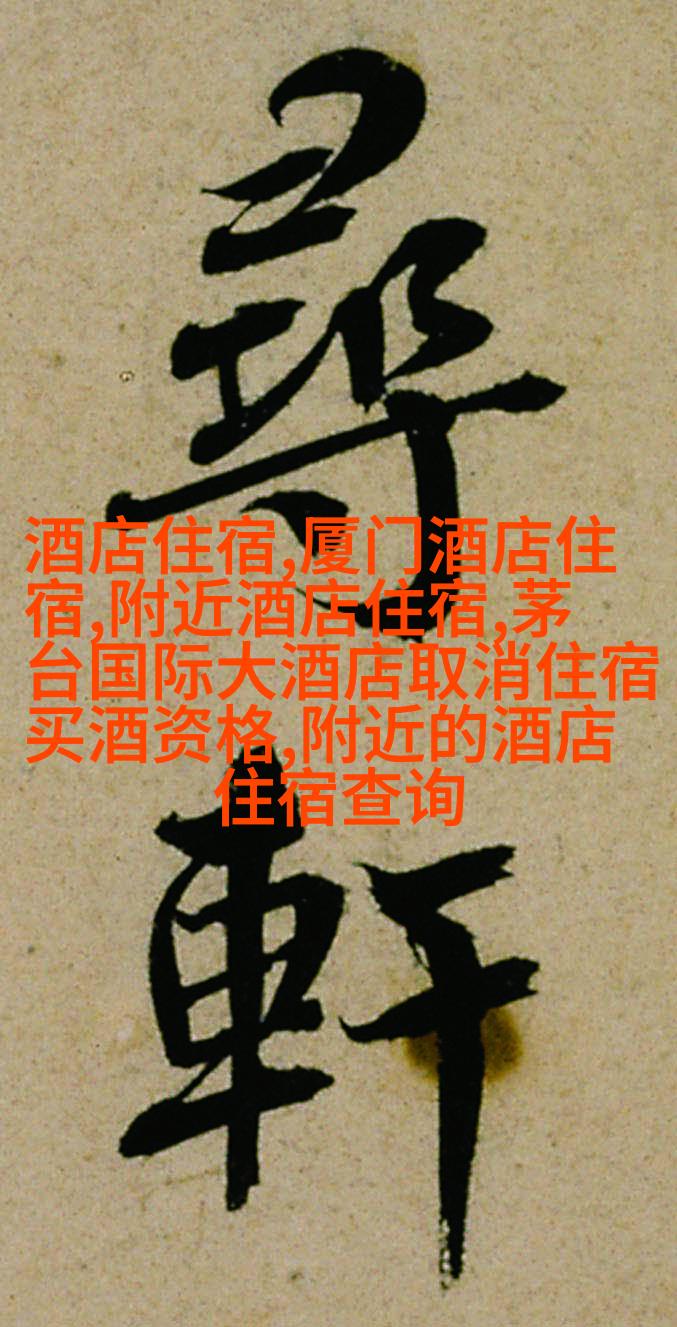 尋
軒
酒店住宿,厦门酒店住
宿,附近酒店住宿,茅
台国际大酒店取消住宿
买酒资格,附近的酒店
住宿查询